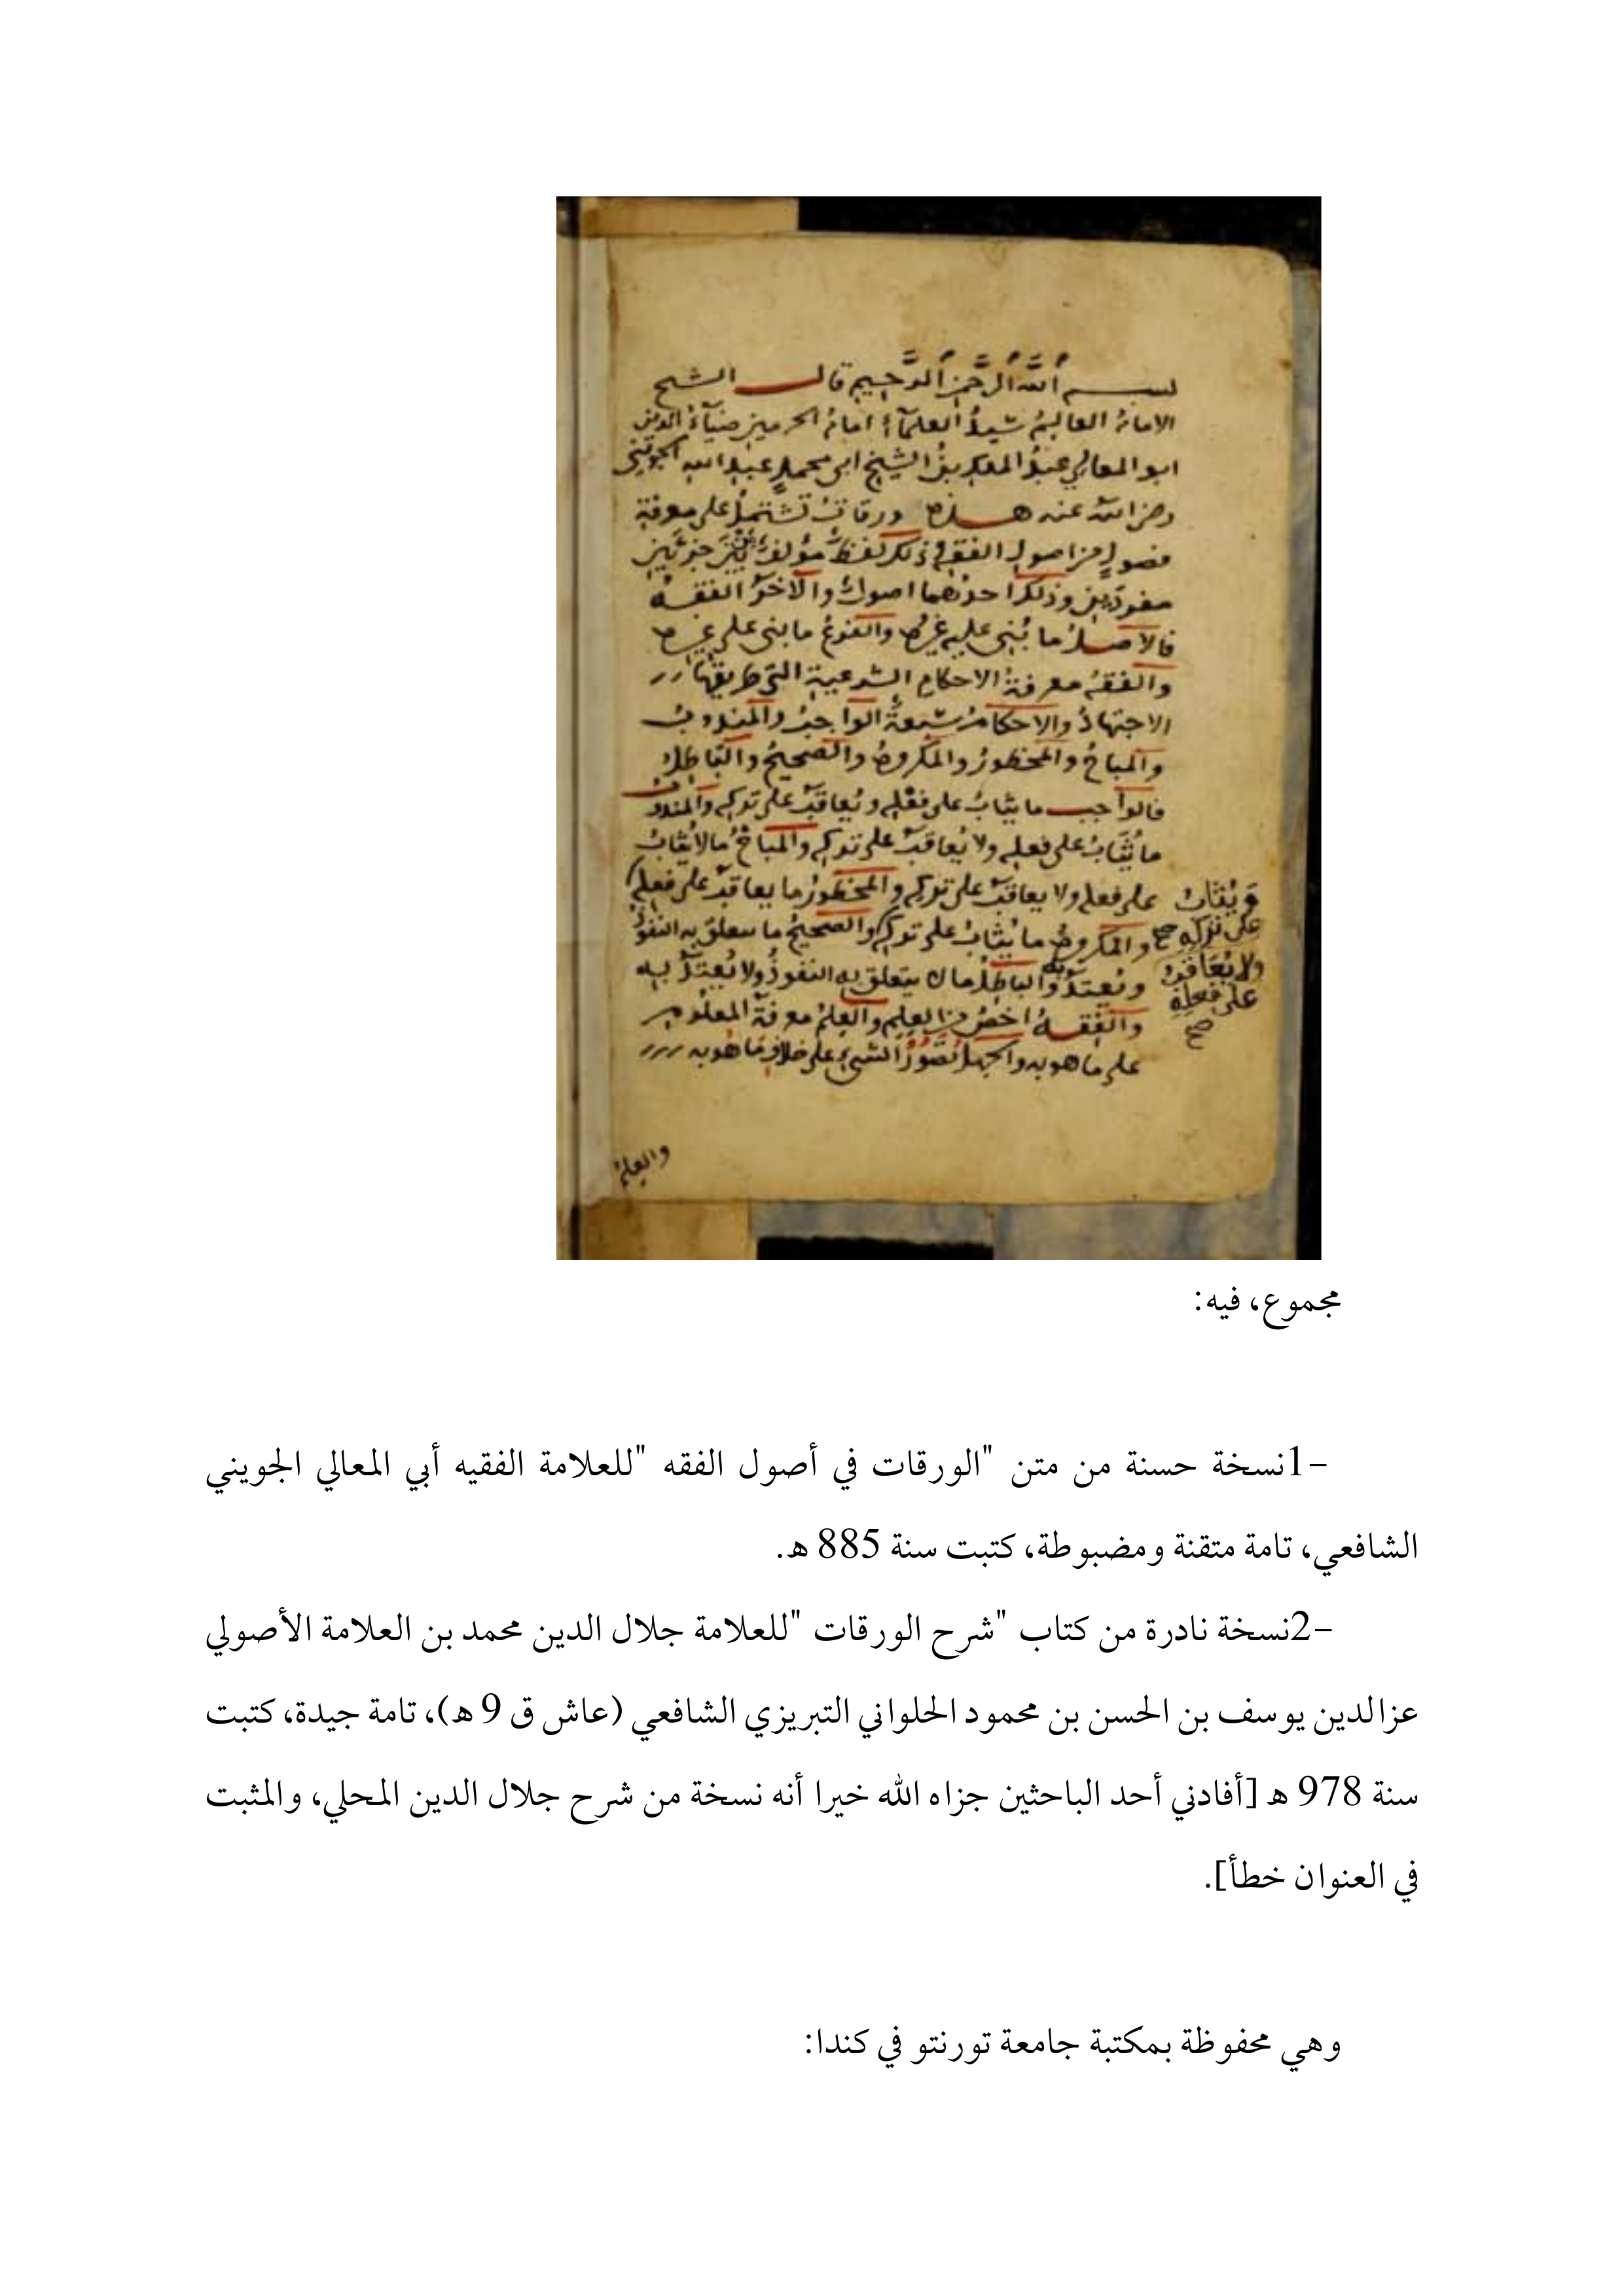 بسم اللّٰه الرَّحمن الرَّحيم قال الشيخ
الامامُ العالِمُ سَيدُ العلمآءِ امامُ الحرمين ضيآءُ الدين
ابو المعالي عبدُ الملكِ بنُ الشيخ ابى محمدٍ عبدِ الله الجوينى
رضى الله عنه هذه ورقاتٌ تشتملُ على معرفة
فصولٍ من اصول الفقهِ وذلك لفظٌ مؤلفٌ من جزئين
مفردين وذلك احدهما اصولٌ والآخرُ الفقه
فالاصلُ ما بُنِى عليه غيرُه والفرعُ ما بنى على غيره
والفقهُ معرفةُ الاحكام الشرعية التى طريقها
الاجتهادُ والاحكامُ سبعةٌ الواجبُ والمندوبُ
والمباحُ والمحظورُ والمكروهُ والصحيحُ والباطلُ
فالواجب ما يثابُ على فعلِه ويُعاقَبُ على تركِه والمندوب
ما يُثَابُ على فعلِه ولا يُعاقبُ على تركِه والمباحُ ما لا يُثابُ
على فعله ولا يعاقبُ على تركِه والمحظورُ ما يعاقبُ على فعلِه
ويُثَابُ
على تركِه صح
والمكروهُ ما يُثابُ على تركِه والصحيحُ ما يتعلق به النفوذُ
ولا يُعَاقبُ
على فعلِه
صح
ويُعتدُّ به والباطلُ ما لا يتعلق به النفوذُ ولا يُعتدُّ به
والفقهُ اخصُّ من العِلم والعِلمُ معرفةُ المعلوم
على ما هو به والجهلُ تصَوُّرُ الشىءِ على خلافِ ما هو به
والعلمُ
مجموع، فيه:
-1نسخة حسنة من متن "الورقات في أصول الفقه "للعلامة الفقيه أبي المعالي الجويني
الشافعي، تامة متقنة ومضبوطة، كتبت سنة 885 هـ.
-2نسخة نادرة من كتاب "شرح الورقات "للعلامة جلال الدين محمد بن العلامة الأصولي
عزالدين يوسف بن الحسن بن محمود الحلواني التبريزي الشافعي (عاش ق 9 هـ)، تامة جيدة، كتبت
سنة 978 هـ [أفادني أحد الباحثين جزاه الله خيرا أنه نسخة من شرح جلال الدين المحلي، والمثبت
في العنوان خطأ].
وهي محفوظة بمكتبة جامعة تورنتو في كندا: